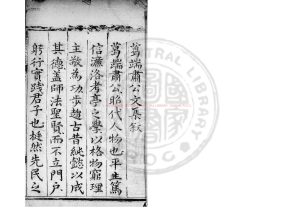 葛端肅公文集叙
葛端肅公昭代人物也平生篤
信濂洛考亭之學以格物窮理
主敬為功步趨古昔純懿以成
其德蓋師法聖賢而不立門戶
躬行實踐君子也挺然先民之